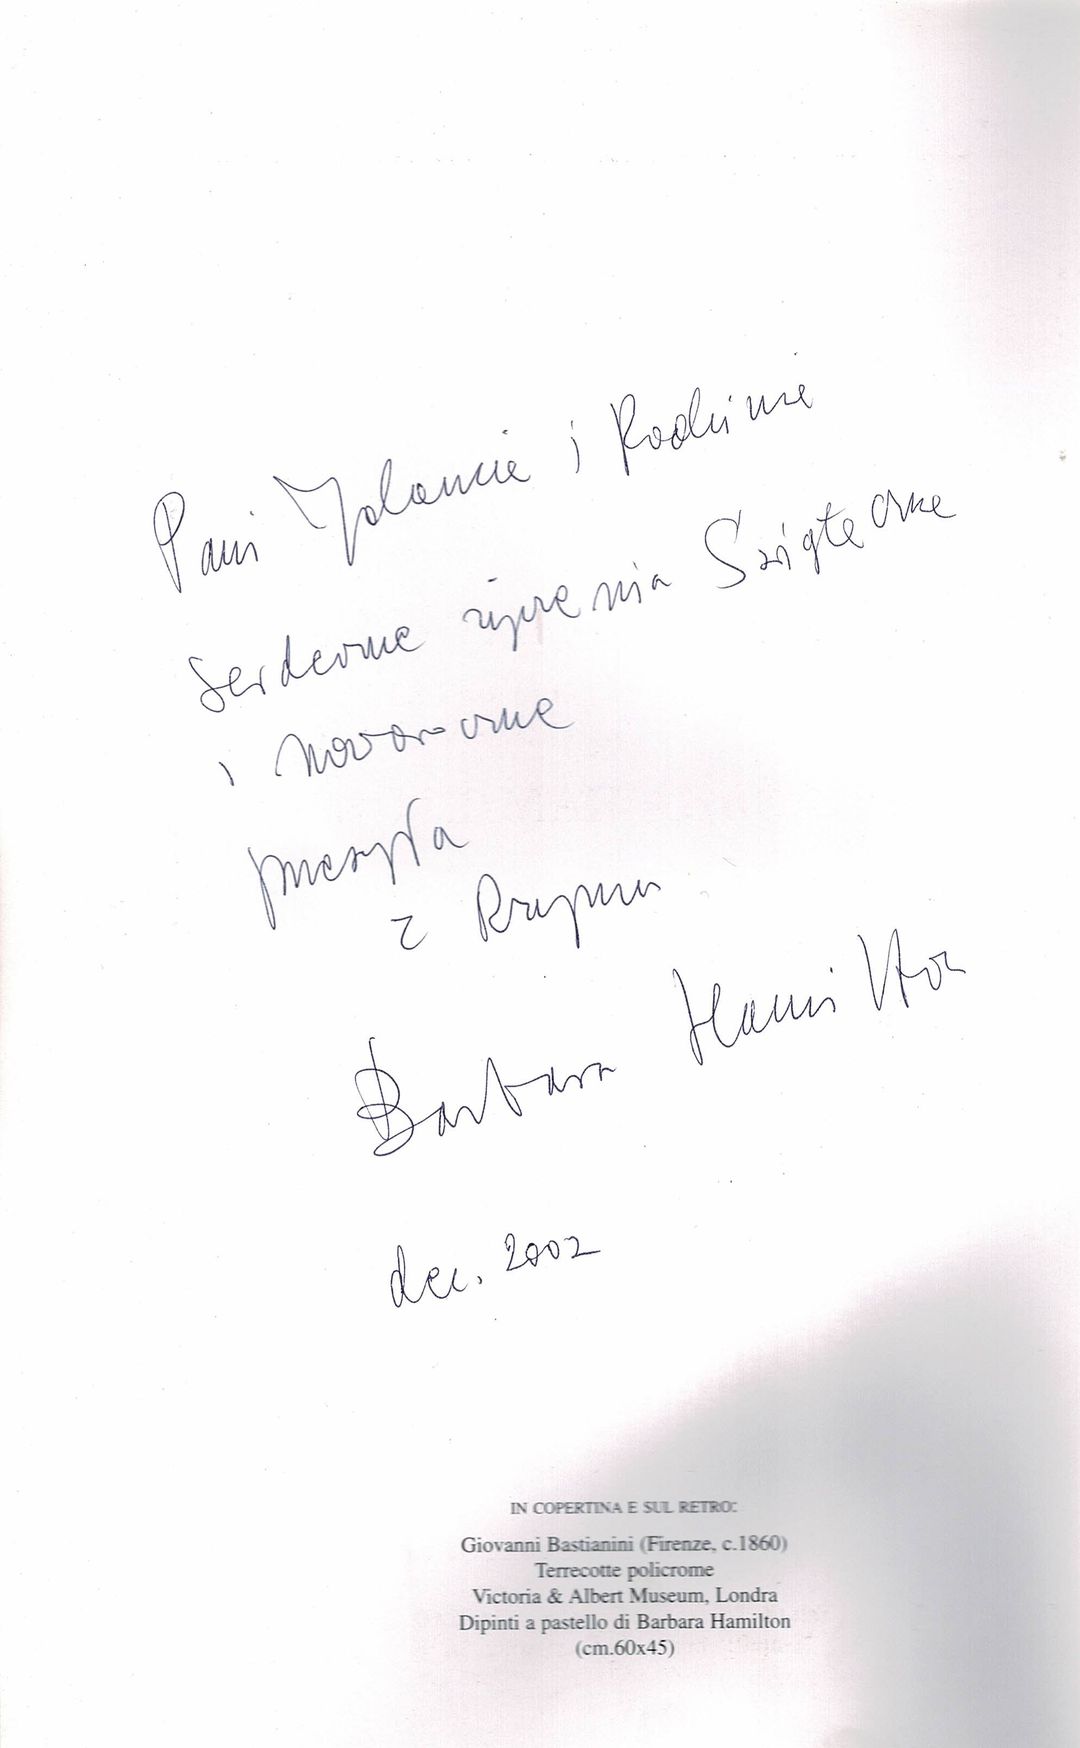 Pani Jolancie i Rodzinie
serdeczne życzenia Świąteczne
i noworoczne
przesyła
z Rzymu
Barbara Hamilton
dec. 2002
IN COPERTINA E SUL RETRO:
Giovanni Bastianini (Firenze, c.1860)
Terrecotte policrome
Victoria & Albert Museum, Londra
Dipinti a pastello di Barbara Hamilton
(cm.60x45)